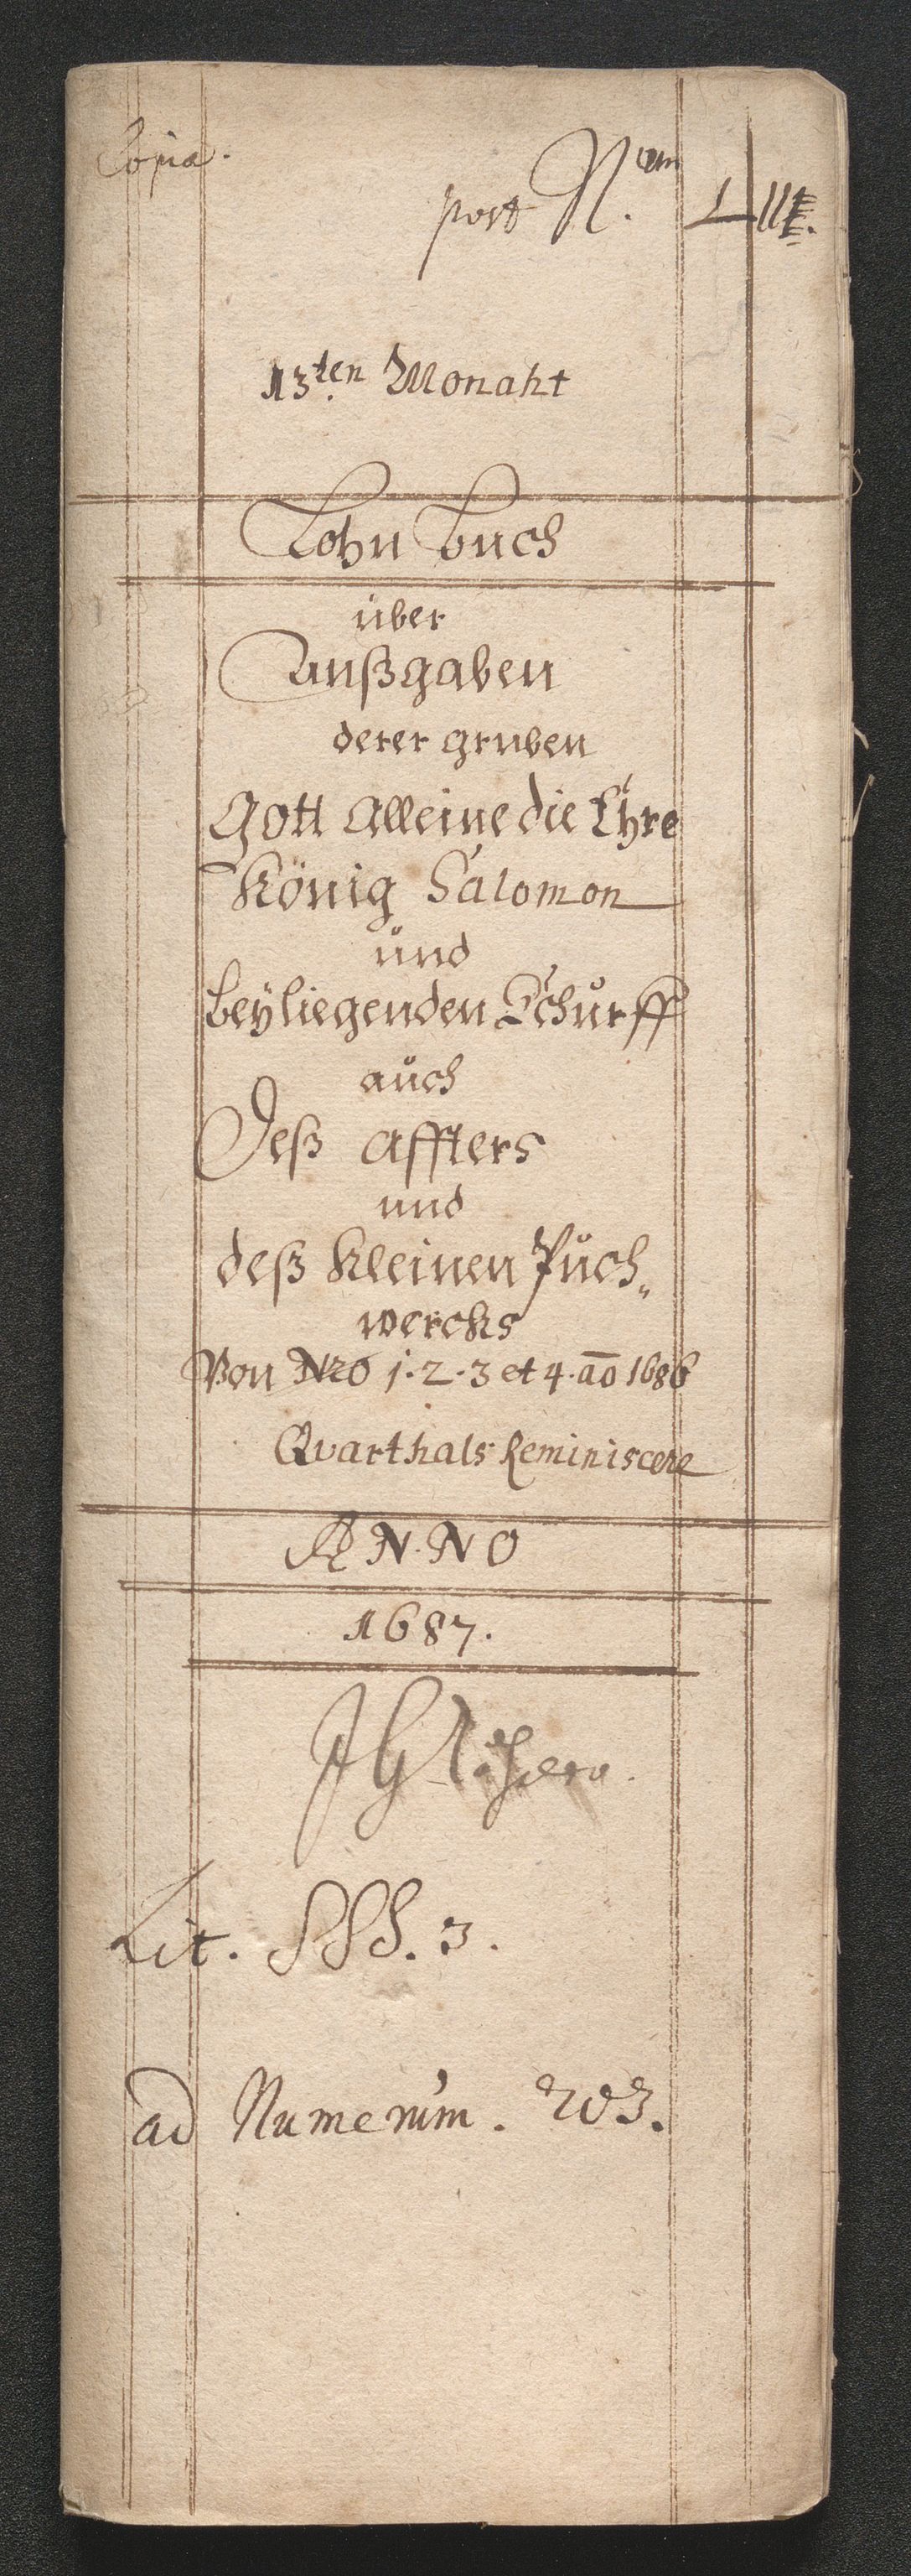 Copia.
post N.um
13ten Monaht
Lohn Buch
über
Außgaben
derer gruben
Gott Alleine die Ehre
König Salomon
und
beÿliegenden Schürff
auch
Deß Affters
und
deß Kleinen Püch„
wercks
Von Nro 1. 2. 3 et 4. ao 1686
Qvarthals Reminiscere
ANNO
1687.
Lit. SSS. 3.
ad Numerum. 203.